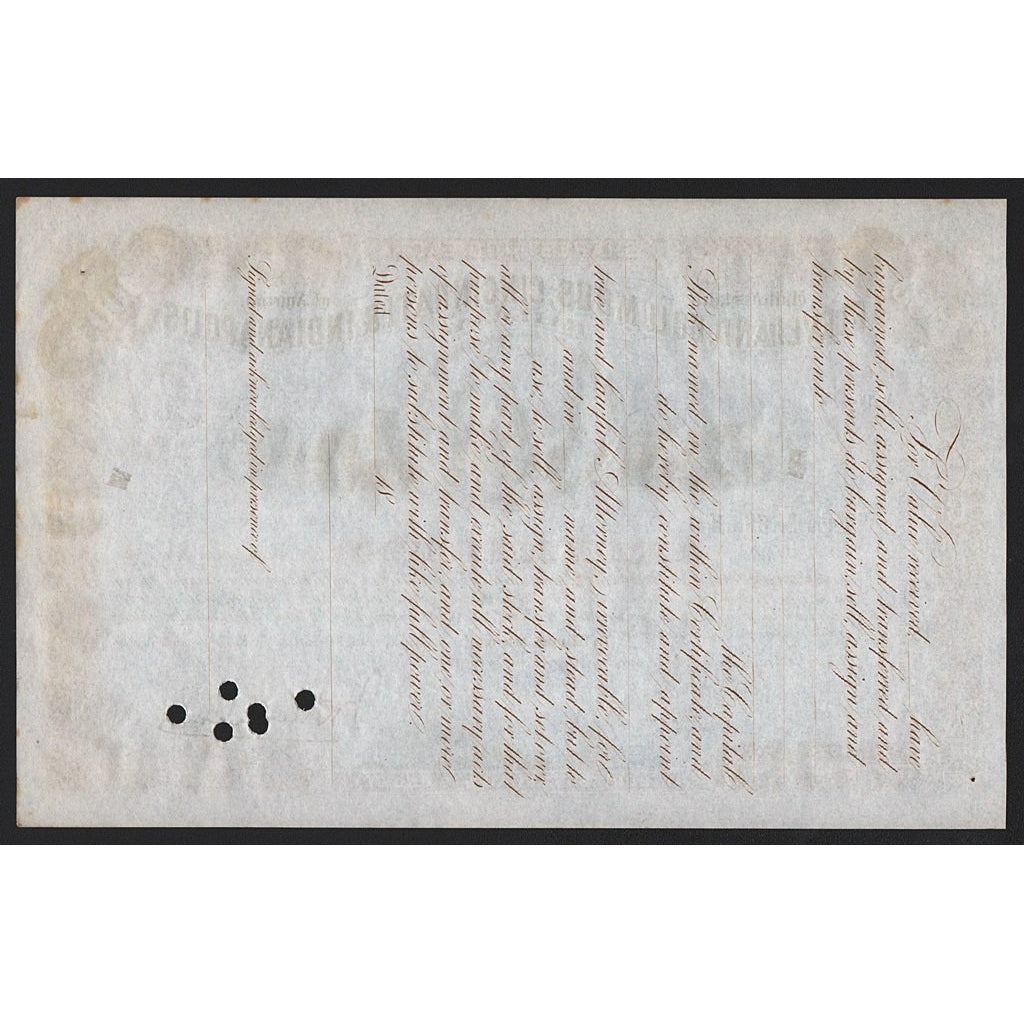 For Value received, have
bargained, sold, assigned and transferred and
by these presents do bargain, sell, assign and
transfer unto
the Capital
Stock named in the within Certificate, and
do hereby constitute and appoint
true and lawful Attorney, irrevocable for
and in name and stead but to
use, to sell, assign, transfer and set over
all or any part of the said stock, and for that
purpose to make and execute all necessary acts
of assignment and transfer, and one or more
persons to substitute with like full power.
Dated 18
Signed and acknowledged in presence of